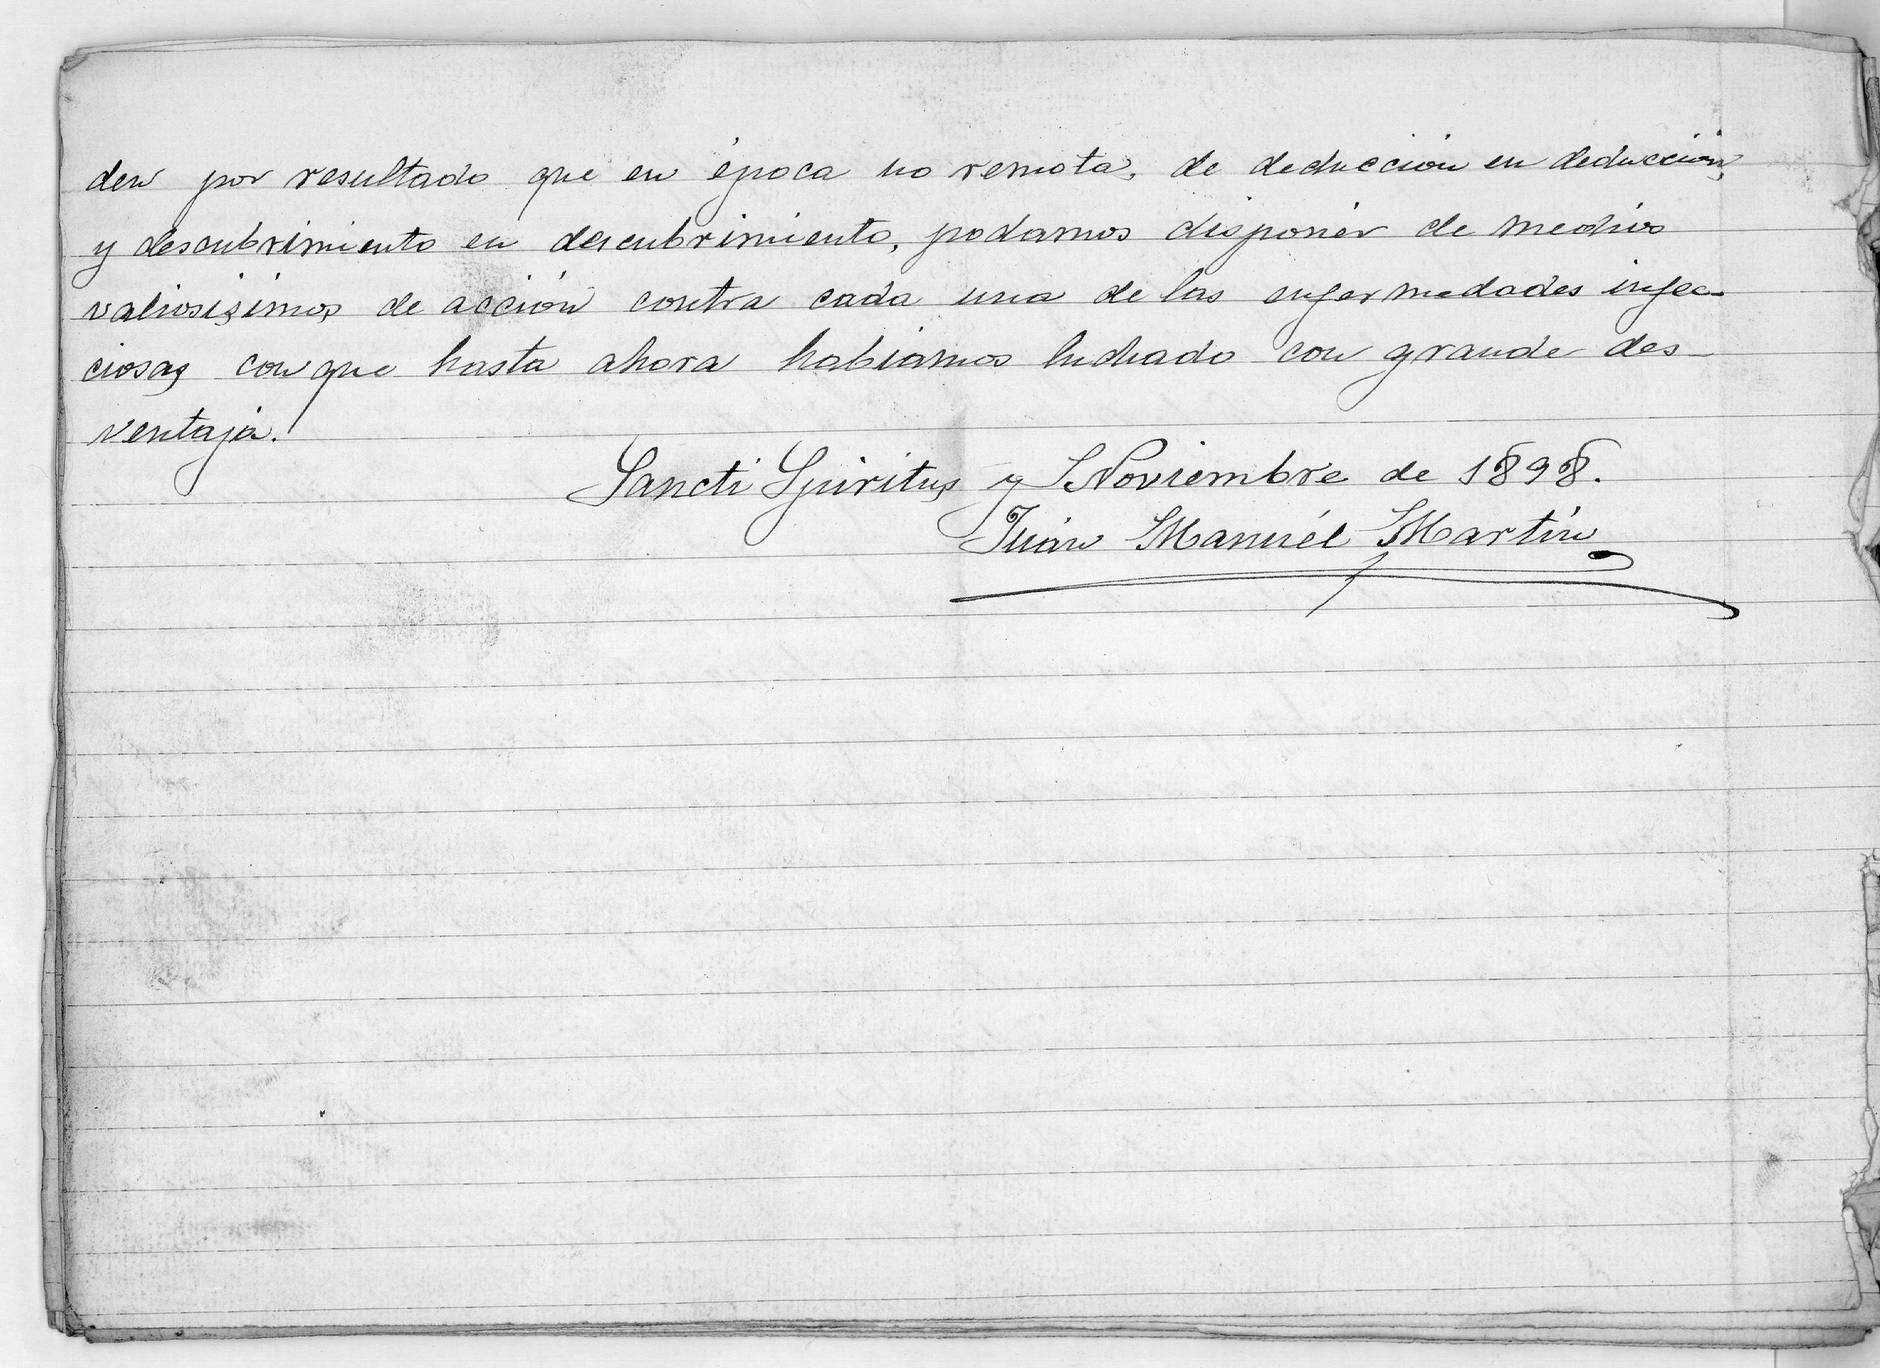 den por resultado que en época no remota, de deducción en deducción,
y descubrimiento en descubrimiento, podamos disponer de medios
valiosisimos de acción contra cada una de las enfermedades infec-
ciosas con que hasta ahora habiamos luchado con grande des-
ventaja.
Sancti Spiritus y Noviembre de 1898.
Juan Manuel Martin